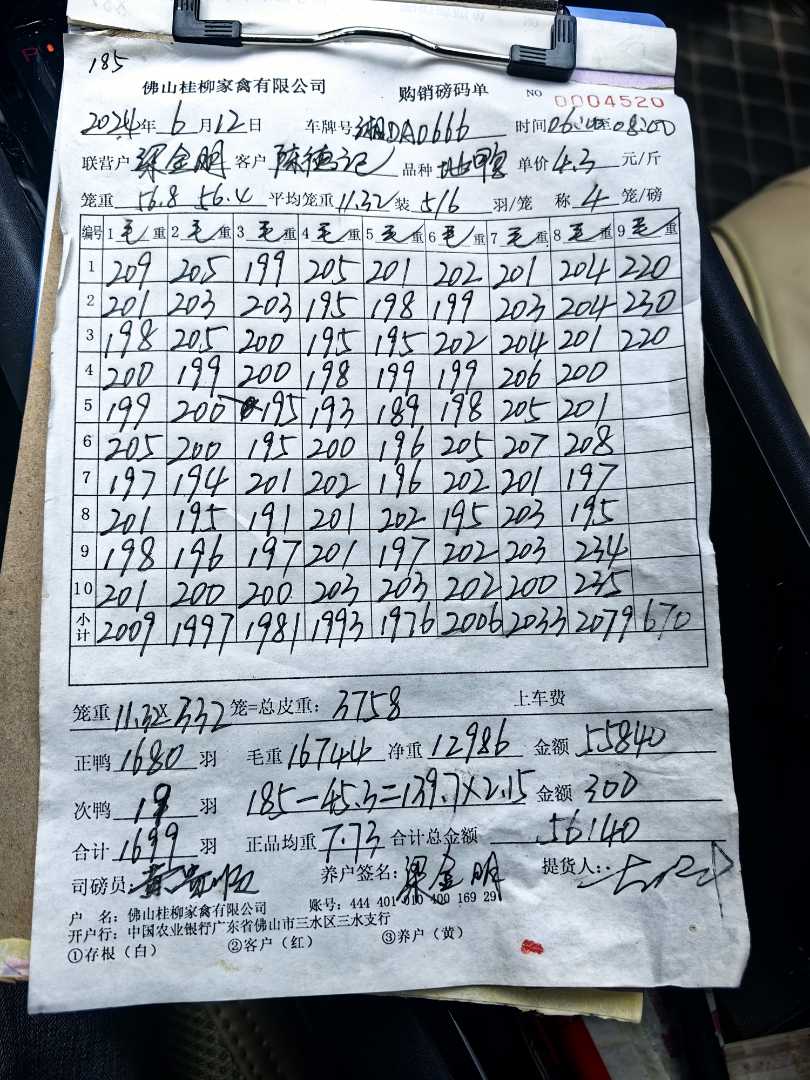 185
佛山桂柳家禽有限公司 购销磅码单 NO 0004520
2024年 6 月 12 日 车牌号 湘DA0666 时间 至08:00
联营户 梁金明 客户 陈德记 品种 单价 4.3 元/斤
笼重 56.8 56.4 平均笼重 11.32 装 5/6 羽/笼 称 4 笼/磅
编号 1 毛 重 2 毛 重 3 毛 重 4 毛 重 5 毛 重 6 毛 重 7 毛 重 8 毛 重 9 毛 重
1 209 205 199 205 201 202 201 204 220
2 201 203 203 195 198 199 203 204 230
3 198 205 200 195 195 202 204 201 220
4 200 199 200 198 199 199 206 200
5 199 200 195 193 189 198 205 201
6 205 200 195 200 196 205 207 208
7 197 194 201 202 196 202 201 197
8 201 195 191 201 202 195 203 195
9 198 196 197 201 197 202 203 234
10 201 200 200 203 203 202 200 235
小计 2009 1997 1981 1993 1976 2006 2033 2079 670
笼重 11.32 X 332 笼=总皮重: 3758 上车费
正鸭 1680 羽 毛重 16744 净重 12986 金额 55840
次鸭 19 羽 185-45.3=139.7×2.15 金额 300
合计 1699 羽 正品均重 7.73 合计总金额 56140
司磅员 养户签名: 梁金明 提货人:
户 名: 佛山桂柳家禽有限公司 账号: 444 401 010 400 169 29
开户行: 中国农业银行广东省佛山市三水区三水支行
①存根（白） ②客户（红） ③养户（黄）